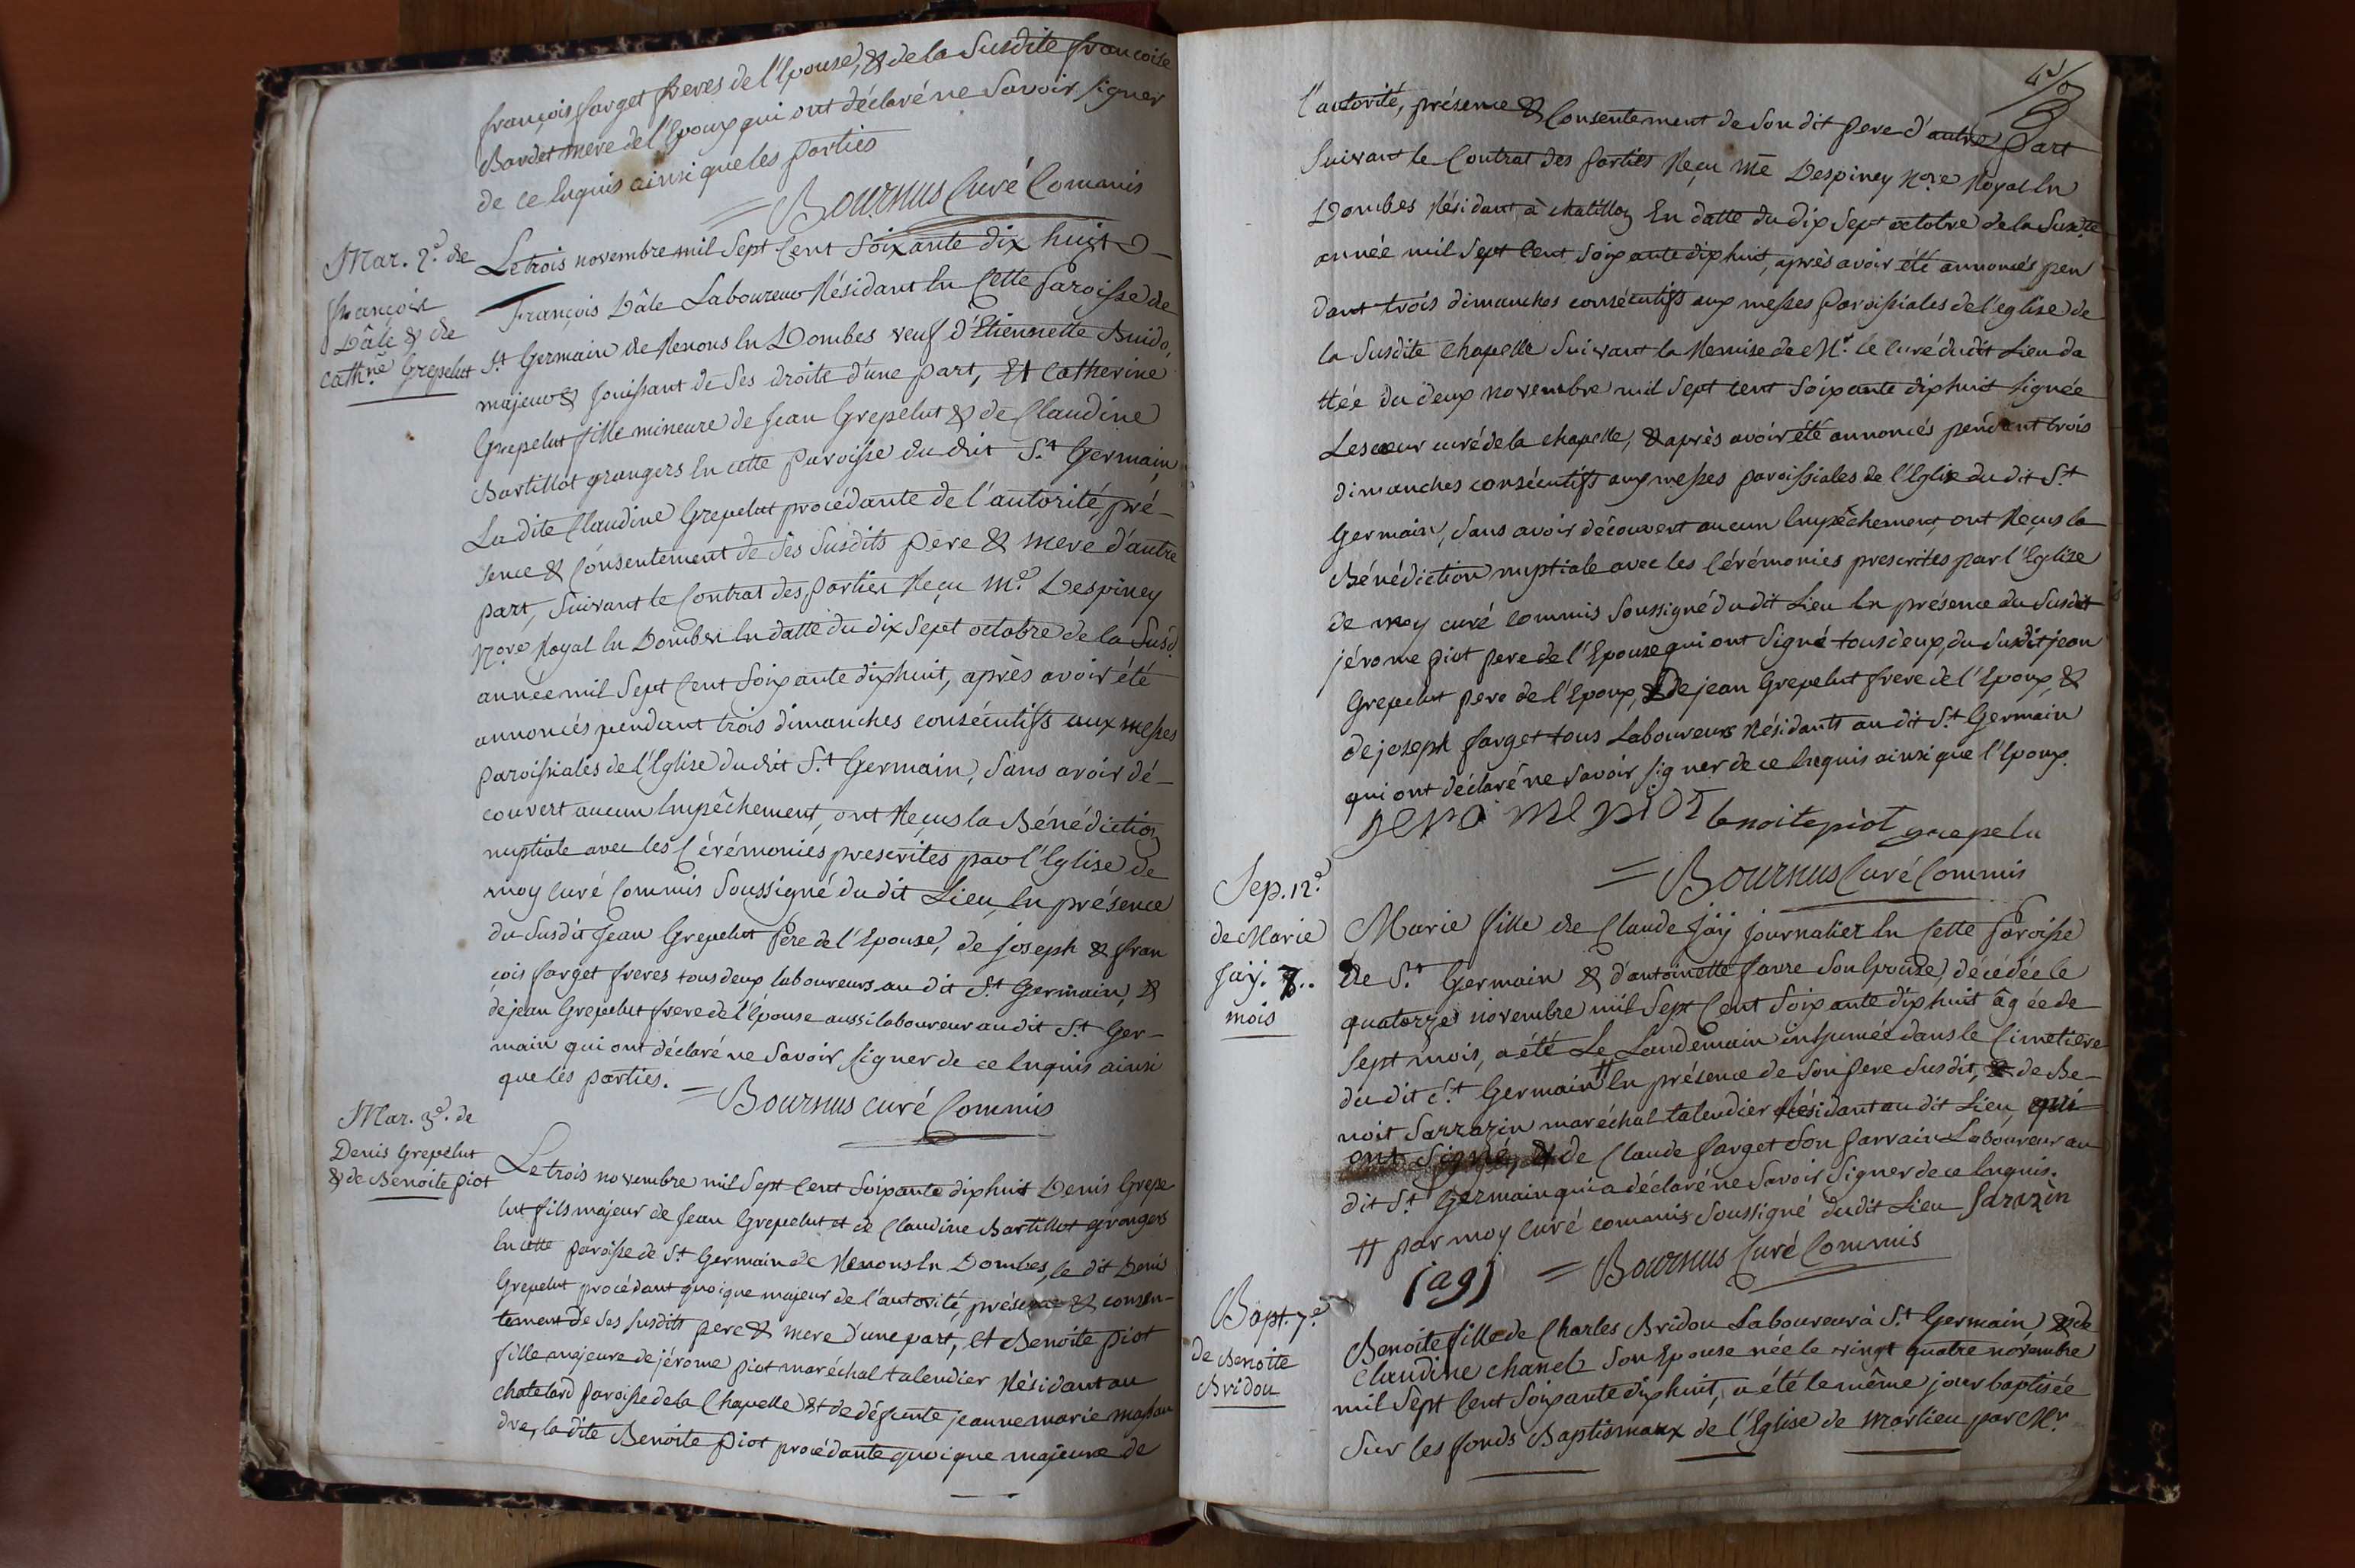 françois farget freres de l'Epouse, & de la Susdite francoise
Bardet mere de l'Epoux qui ont déclaré ne Savoir signer
de ce Enquis ainsi que les parties
= Bournus Curé Commis
Mar. 2.e de
François
Dâle & de
Cath.ne Grepelut
Le trois novembre mil Sept Cent Soixante dix huit
François Dâle Laboureur Résidant En Cette Paroisse de
S.t Germain de Renons En Dombes veuf d'Etiennette Buido,
majeur & jouissant de Ses droits d'une part, Et Catherine
Grepelut fille mineure de Jean Grepelut & de Claudine
Bartillot grangers En cette Paroisse du dit S.t Germain,
La dite Claudine Grepelut procédante de l'autorité, pré-
sence & Consentement de Ses Susdits pere & mere d'autre
part, Suivant le Contrat des parties Reçu M.e Despiney
N.re Royal En Dombes En datte du dix Sept octobre de la Susd.
année mil Sept Cent Soixante dix huit, après avoir été
annoncés pendant trois dimanches consécutifs aux messes
paroissiales de l'Eglise du dit S.t Germain, Sans avoir dé-
couvert aucun Empêchement, ont Reçus la Bénédiction
nuptiale avec les Cérémonies prescrites par l'Eglise de
moy Curé Commis Soussigné du dit Lieu, En présence
du Susdit Jean Grepelut Père de l'Epouse, de joseph & fran
çois farget freres tous deux laboureurs au dit S.t Germain, &
de jean Grepelut frere de l'Epouse aussi laboureur au dit S.t Ger-
main qui ont déclaré ne Savoir Signer de ce Enquis ainsi
que les parties. = Bournus curé Commis
Mar. 3.e de
Denis Grepelut
& de Benoite piot
Le trois novembre mil Sept Cent Soixante dix huit Denis Grepe
lut fils majeur de Jean Grepelut et de Claudine Bartillot grangers
En cette paroisse de S.t Germain de Renons En Dombes, le dit Denis
Grepelut procédant quoique majeur de l'autorité, présence & consen-
tement de Ses susdits pere & mere d'une part, et Benoite piot
fille majeure de jérome piot maréchal talendier Résidant au
chatelard paroisse de la Chapelle & de défunte jeanne marie
la dite Benoite piot procédante quoique majeure de
l'autorité, présence & Consentement de Son dit pere d'autre part
Suivant le Contrat des parties Reçu M.e Despiney N.re Royal En
Dombes Résidant à chatillon En datte du dix Sept octobre de la Susd.te
année mil Sept Cent Soixante dix huit, après avoir été annoncés pen
dant trois dimanches consécutifs aux messes Paroissiales de l'eglise de
la Susdite Chapelle Suivant la Remise de M.r le curé du dit Lieu da
ttée du deux novembre mil Sept cent Soixante dix huit signée
Lescoeur curé de la chapelle, & après avoir été annoncés pendant trois
dimanches consécutifs aux messes paroissiales de l'Eglise du dit S.t
Germain, Sans avoir découvert aucun Empêchement, ont Reçus la
Bénédiction nuptiale avec les Cérémonies prescrites par l'Eglise
de moy curé commis Soussigné du dit Lieu En présence du Susdit
jérome piot pere de l'Epouse qui ont Signé tous deux, du Susdit jean
Grepelut pere de l'Epoux, & de jean Grepelut frere de l'Epoux, &
de joseph farget tous Laboureurs Résidants au dit S.t Germain
qui ont déclaré ne Savoir signer de ce Enquis ainsi que l'Epoux.
jerome piot benoite piot grepelu
= Bournus Curé Commis
Sep. 12.e
de Marie
Jaÿ. 7..
mois
Marie fille de Claude Jaÿ journalier En Cette Paroisse
de S.t Germain & d'antoinette favre Son Epouse, décédée le
quatorze novembre mil Sept Cent Soixante dix huit âgée de
Sept mois, a été Le Landemain inhumée dans le Cimetiere
du dit S.t Germain ++ En présence de Son pere Susdit, & de Be-
noit Sarrazin maréchal talendier Résidant au dit Lieu, qui
ont signé, & de Claude farget Son parrain Laboureur au
dit S.t Germain qui a déclaré ne Savoir Signer de ce Enquis.
++ par moy curé commis Soussigné du dit Lieu Sarazin
jay = Bournus Curé Commis
Bapt. 7.e
de Benoite
Bridou
Benoite fille de Charles Bridou Laboureur à S.t Germain & de
Claudine chanel Son Epouse née le vingt quatre novembre
mil Sept Cent Soixante dix huit, a été le même jour baptisée
Sur les fonds Baptismaux de l'Eglise de Marlieu par M.r